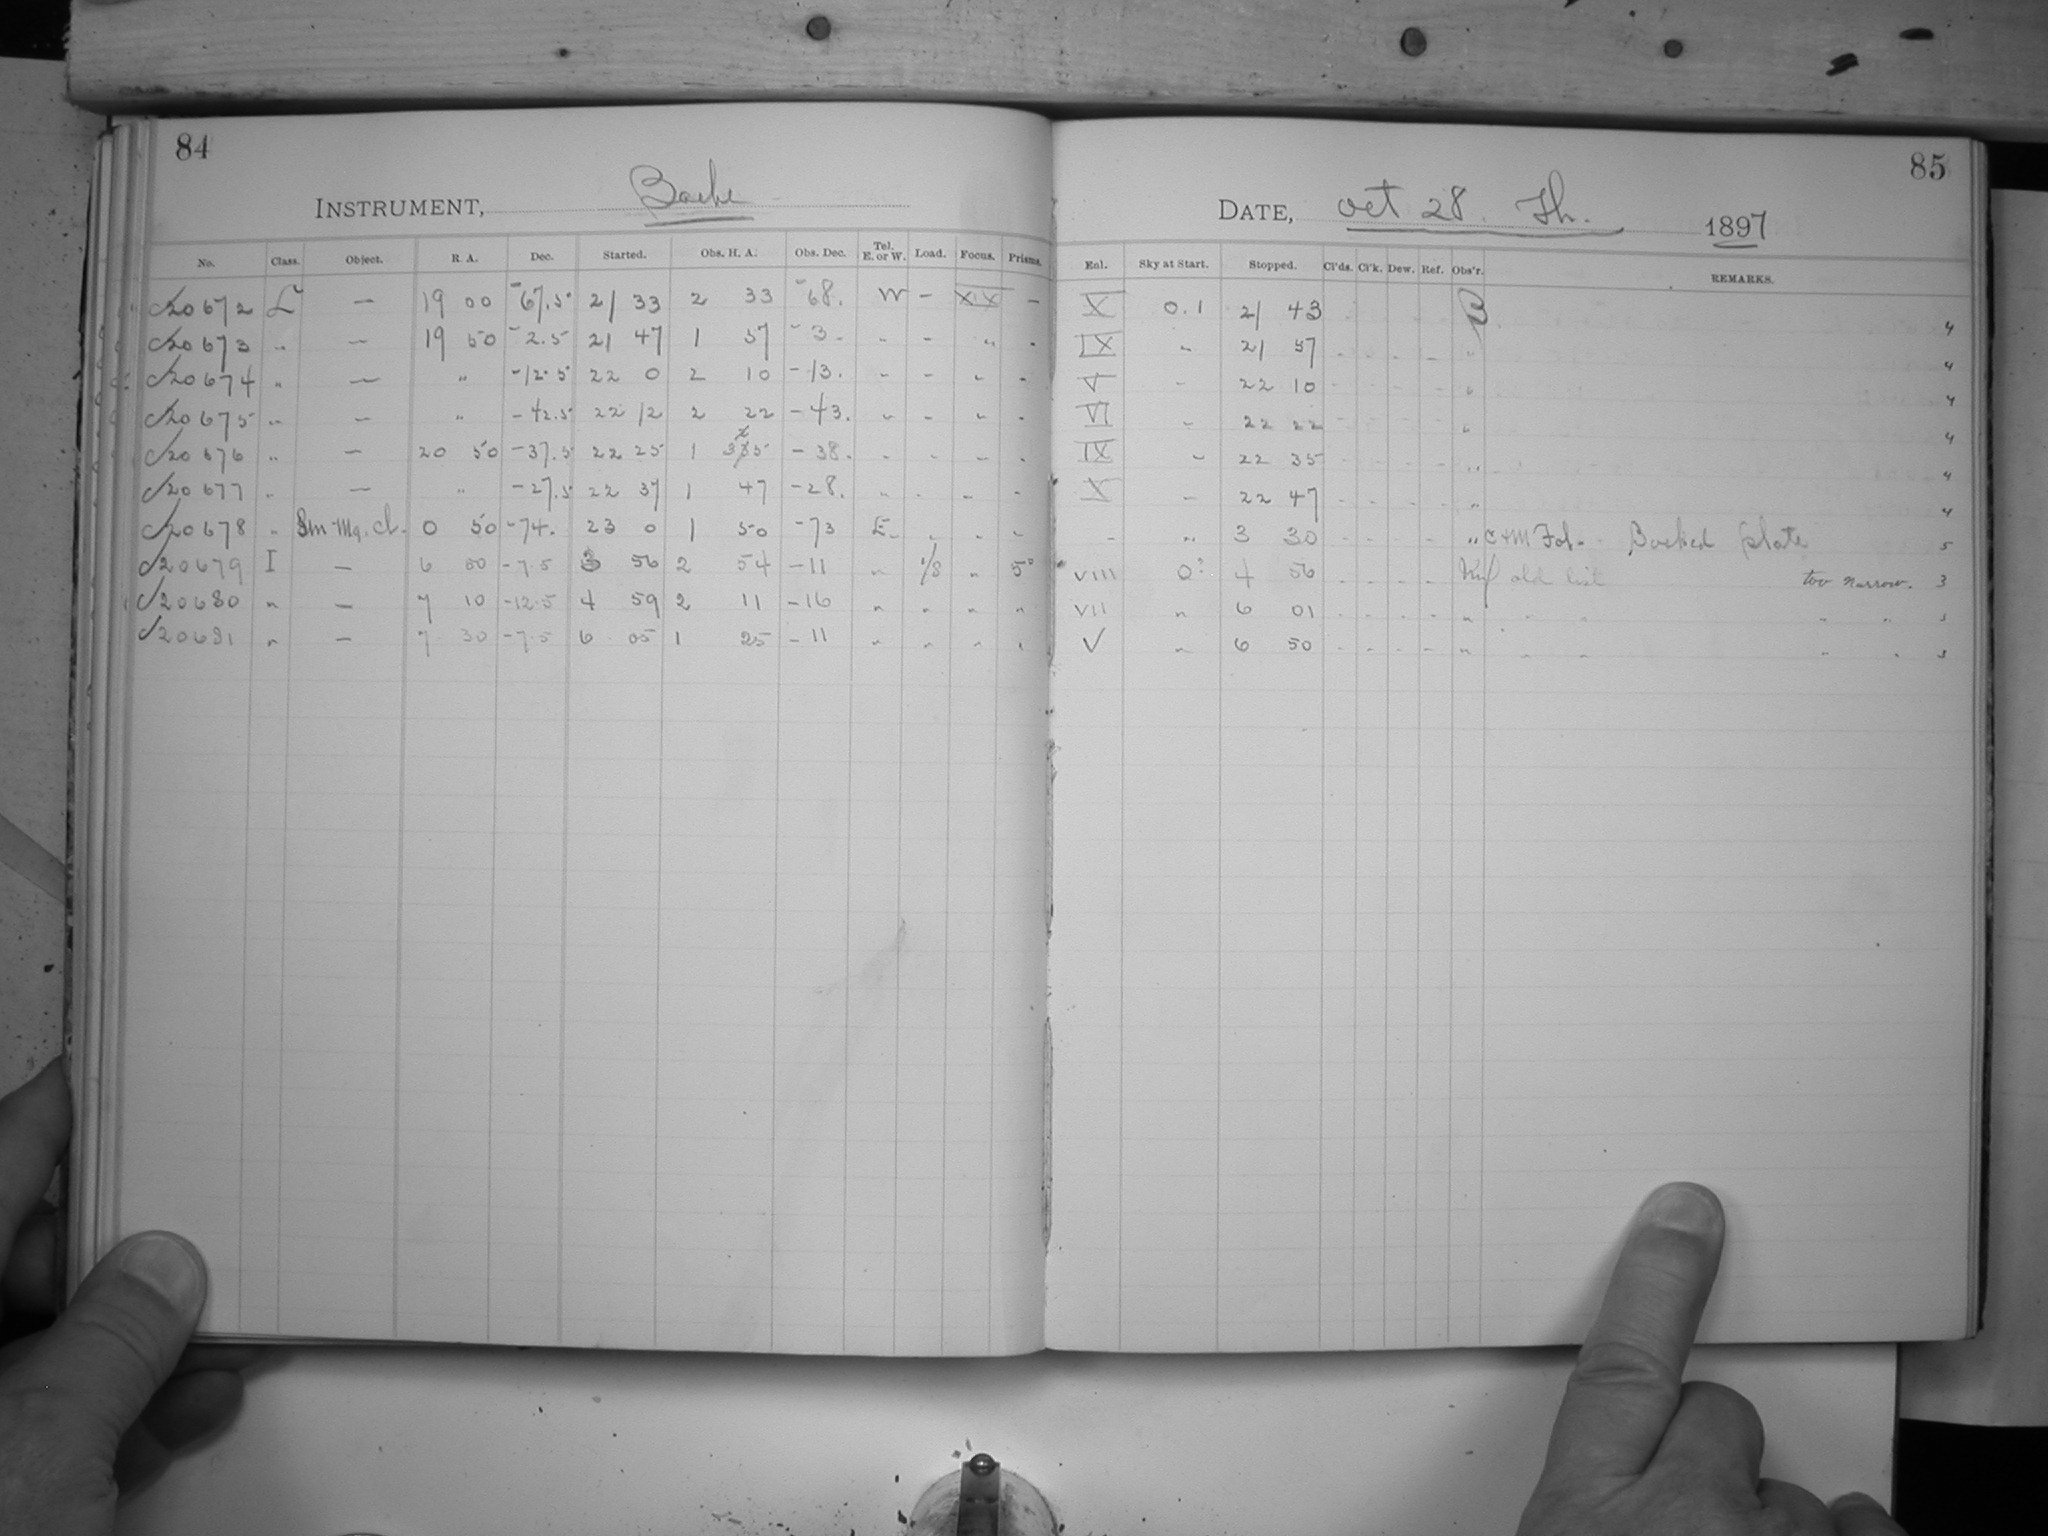 84
INSTRUMENT, Bache
No. Class. Object. R. A. Dec. Started. Obs. H. A. Obs. Dec. Tel. E. or W. Load. Focus. Prisms.
20672 L — 19 00 -67.5 21 33 2 33 -68. W - XIX -
20673 " — 19 50 -2.5 21 47 1 57 -3. - - " -
20674 " — " -12.5 22 0 2 10 -13. - - " -
20675 " — " -42.5 22 12 2 22 -43. " - " -
20676 " — 20 50 -37.5 22 25 1 35 -38. " - " -
20677 " — " -27.5 22 37 1 47 -28. " - " -
20678 " Sm. Mg. Cl. 0 50 -74. 23 0 1 50 -73 E - " -
20679 I — 6 00 -7.5 3 56 2 54 -11 " 1/8 " 5°
20680 " — 7 10 -12.5 4 59 2 11 -16 " " " "
20681 " — 7 30 -7.5 6 05 1 25 -11 " " " "
85
DATE, Oct 28. Th. 1897
Enl. Sky at Start. Stopped. Cl'ds. Cl'k. Dew. Ref. Obs'r. REMARKS.
X 0.1 21 43 B 4
IX " 21 57 - - - - " 4
V " 22 10 - - - - " 4
VI " 22 22 - - - - " 4
IX " 22 35 - - - - " 4
X " 22 47 - - - - " 4
- " 3 30 - - - - " Backed plate 5
VIII 0? 4 56 - - - - old list too narrow. 3
VII " 6 01 - - - - " " " " " 3
V " 6 50 - - - - " " " " " 3